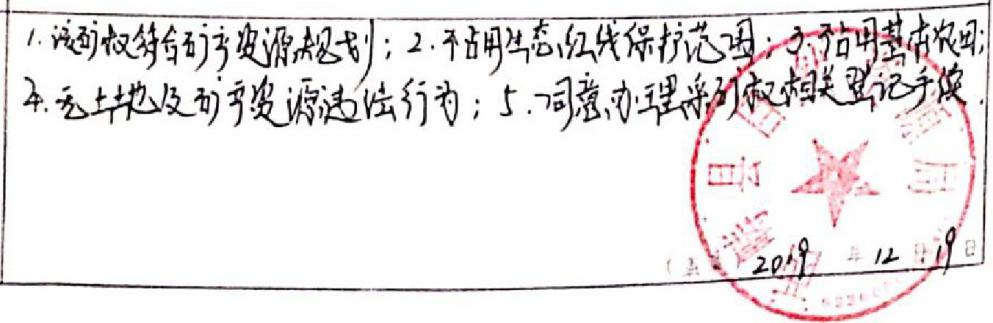 1.该矿权符合矿产资源规划；2.不占用生态红线保护范围；3.不占用基本农田；
4.无土地及矿产资源违法行为；5.同意办理采矿权相关登记手续.
2019年12月19日